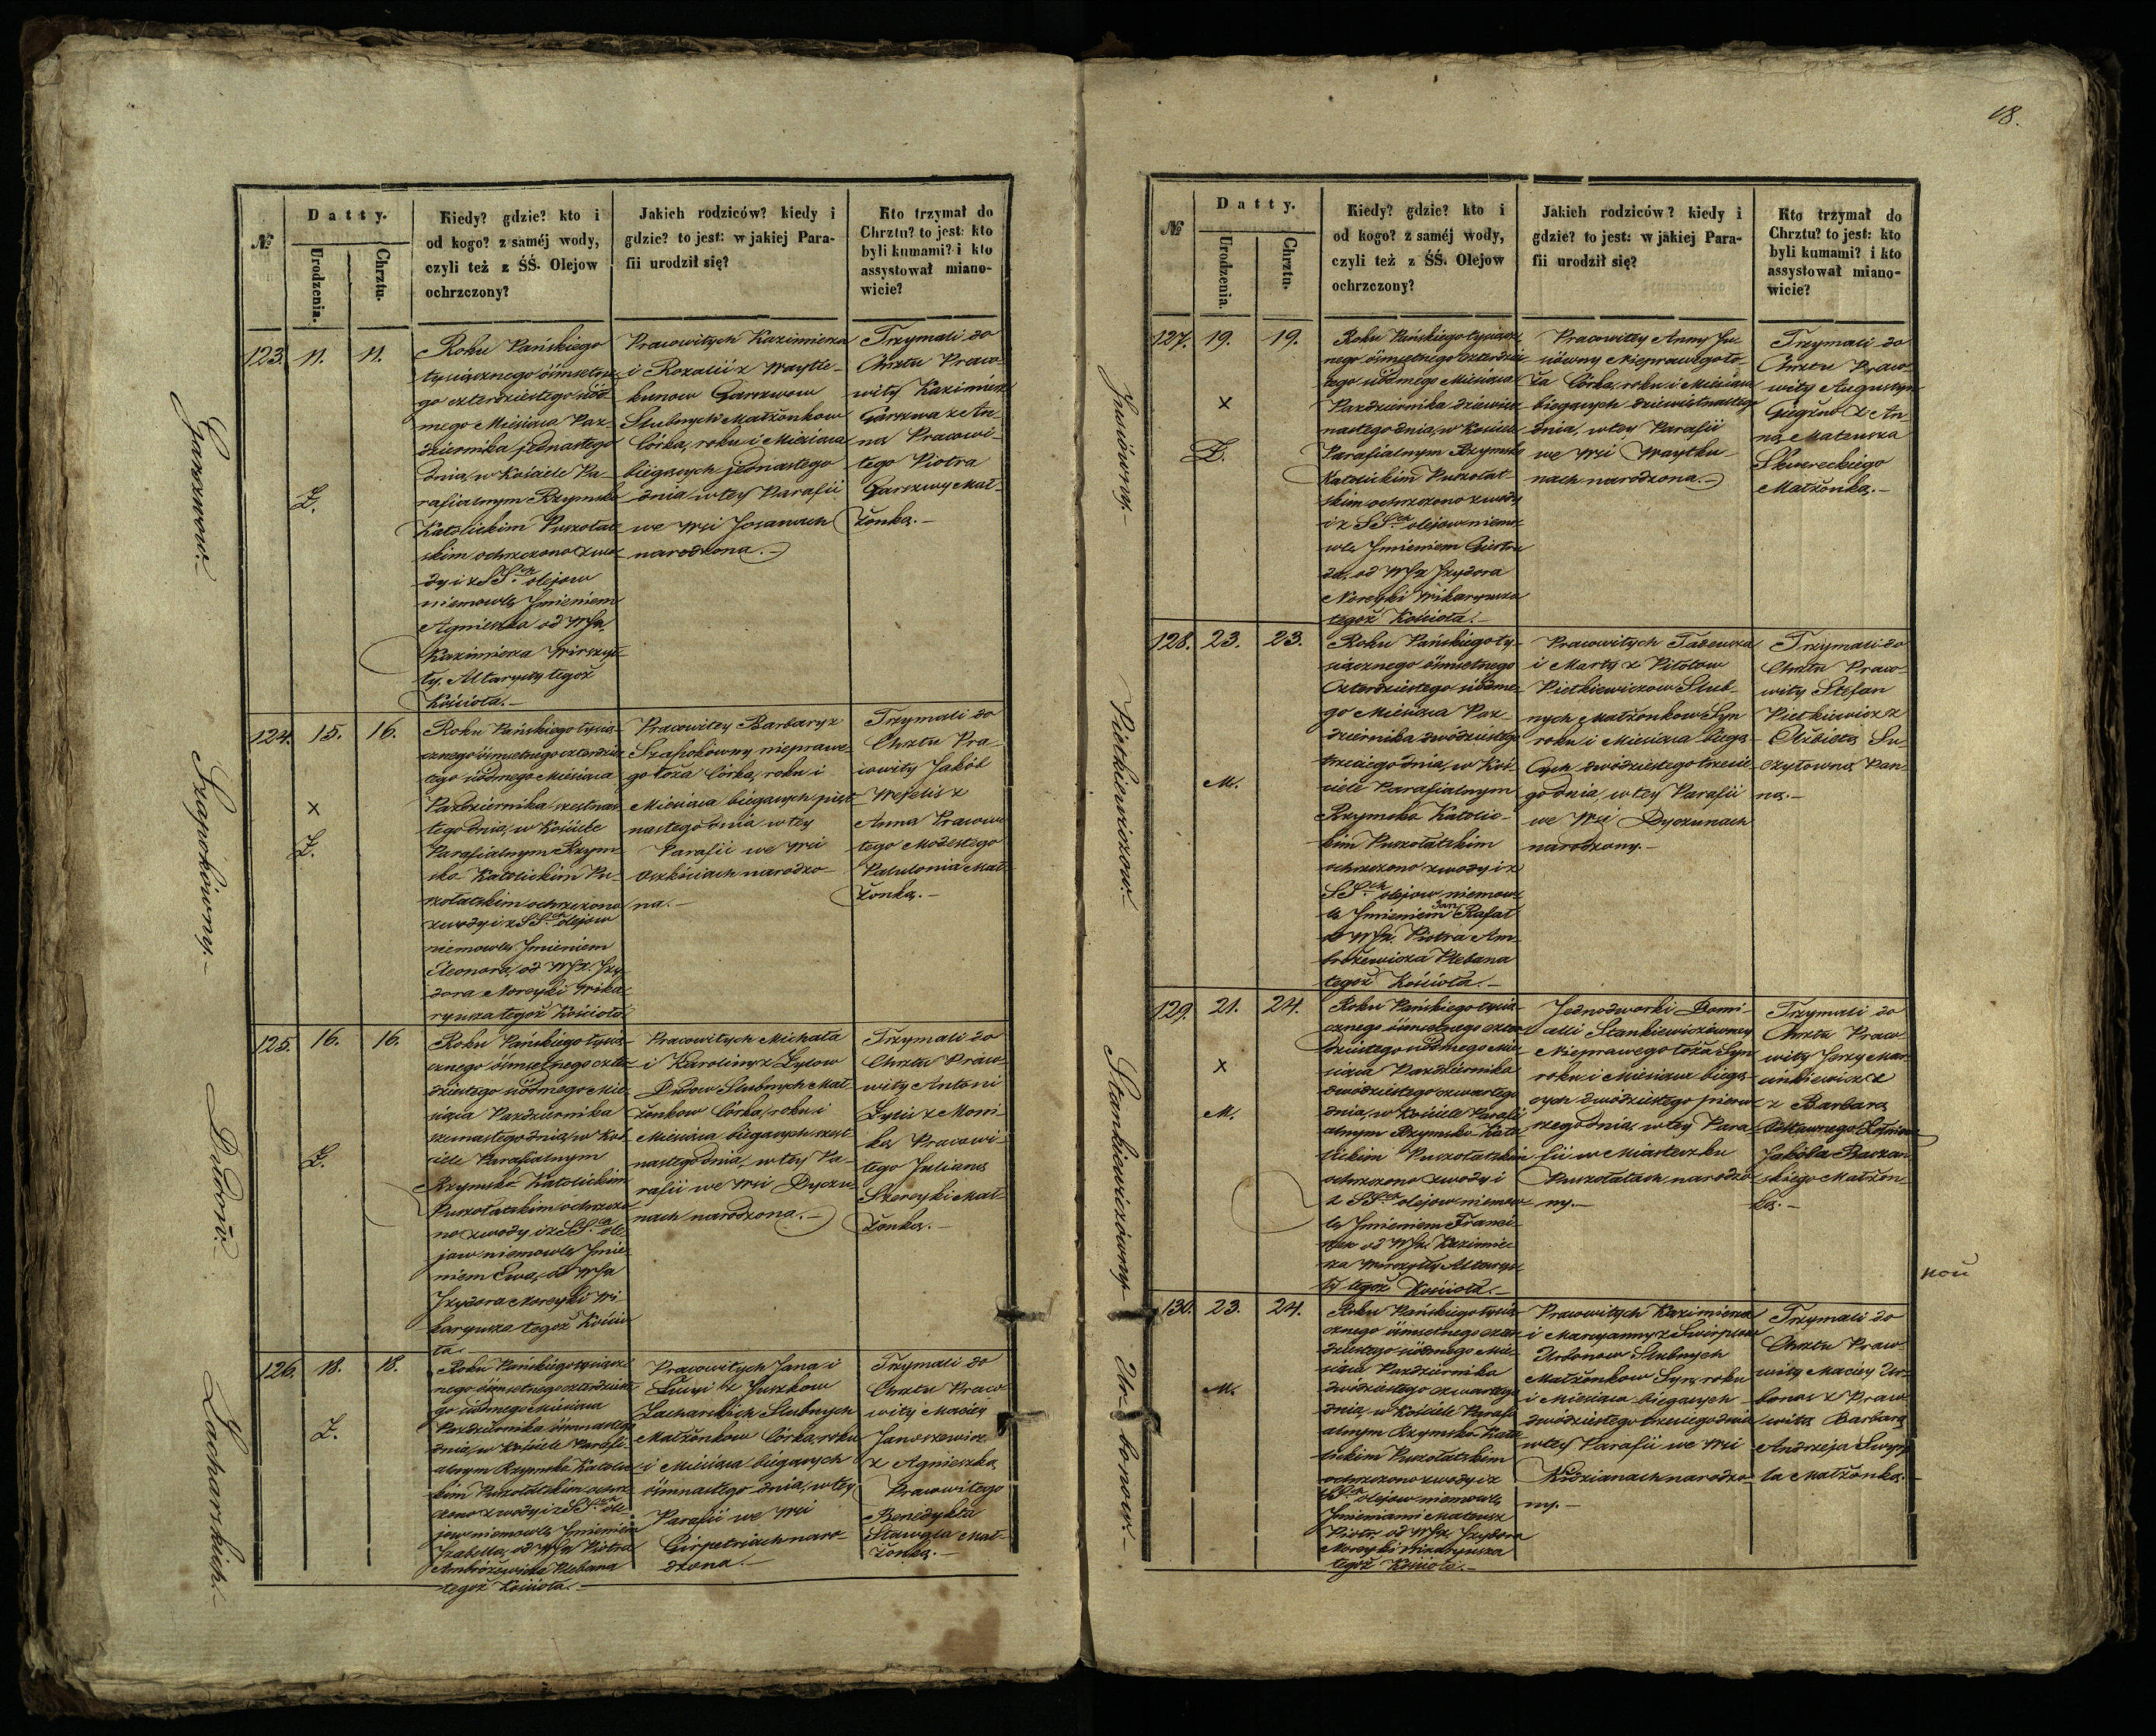 №
Datty.
Urodzenia.
Chrztu.
Kiedy? gdzie? kto i
od kogo? z saméj wody,
czyli też z ŚŚ. Olejow
ochrzczony?
Jakich rodziców? kiedy i
gdzie? to jest: w jakiej Para-
fii urodził się?
Kto trzymał do
Chrztu? to jest: kto
byli kumami? i kto
assystował miano-
wicie?
123. 11. 11.
Ż.
Roku Pańskiego
tysiącznego ośmsetne-
go czterdziestego siód-
mego Miesiąca Paź-
dziernika jednastego
dnia, w Kościele Pa-
rafialnym Rzymsko
Katolickim Puszołat-
skim ochrzczono z wo-
dy i z SSch olejow
niemowle Jmieniem
Agnieszka od WJX.
Kazimierza Wirszył-
ły, Altarysty tegoż
Kościoła.-
Pracowitych Kazimierza
i Rozalii z Waytie-
kunow Garszwow
Slubnych Małżonkow
Córka, roku i Miesiąca
biegących jednastego
dnia, w tey Parafii
we Wsi Josanach
narodzona.-
Trzymali do
Chrztu Praco-
wity Kazimierz
Garszwa z An-
ną Pracowi-
tego Piotra
Garszwy Mał-
żonką.-
124. 15. 16.
×
Ż.
Roku Pańskiego tysią-
cznego ośmsetnego czterdzies-
tego siódmego Miesiąca
Pazdziernika szestnas-
tego dnia, w Kościele
Parafialnym Rzym-
sko Katolickim Pu-
szołatskim ochrzczono
z wody i z SSch olejow
niemowle Jmieniem
Eleonora, od WJX. Jzy-
dora Noreyki Wika-
ryusza tegoż Kościoła
Pracowitey Barbary z
Szapokówny niepraw-
go łoża Córka, roku i
Miesiąca biegących pięt-
nastego dnia, w tey
Parafii we Wsi
Oszkściach narodzo-
na.-
Trzymali do
Chrztu Pra-
cowity Jakób
Wejelis z
Anną Pracowi-
tego Modestego
Patulonia Mał-
żonką.-
125. 16. 16.
Ż.
Roku Pańskiego tysią-
cznego ośmsetnego czter-
dziestego siódmego Mie-
siąca Pazdziernika
szesnastego dnia, w Koś-
ciele Parafialnym
Rzymsko Katolickim
Puszołatskim ochrzczo-
no z wody i z SSch ole-
jow niemowle Jmie-
niem Ewa, od WJX
Jzydora Noreyki Wi-
karyusza tegoż Kościo-
ła.-
Pracowitych Michała
i Karoliny z Zylow
Slubnych Mał-
żonkow Córka, roku i
Miesiąca biegących szest-
nastego dnia, w tey Pa-
rafii we Wsi Dyczu-
nach narodzona.-
Trzymali do
Chrztu Praco-
wity Antoni
Zylis z Moni-
ką Pracowi-
tego Juliana
Szereyki Mał-
żonką.-
126. 18. 18.
Ż.
Roku Pańskiego tysiącz-
nego ośmsetnego czterdzieste-
go siódmego Miesiąca
Pazdziernika ośmnastego
dnia, w Kościele Parafi-
alnym Rzymsko Katolic-
kim Puszołatskim ochrz-
czono z wody i z SSch ole-
jow niemowle Jmieniem
Jzabella, od WJX Piotra
Ambrożewicza Plebana
tegoż Kościoła.-
Pracowitych Jana i
Łucyi z Juszkow
Zacharskich Slubnych
Małżonkow Córka, roku
i Miesiąca biegących
ośmnastego dnia, w tey
Parafii we Wsi
Girpetriach naro-
dzona.-
Trzymali do
Chrztu Praco-
wity Maciey
Januszewicz
z Agnieszką
Pracowitego
Benedykta
Stawgia Mał-
żonką.-
Garszwow.-
Szapokówny.-
Zacharskich.-
18.
№
Datty.
Urodzenia.
Chrztu.
Kiedy? gdzie? kto i
od kogo? z saméj wody,
czyli też z ŚŚ. Olejow
ochrzczony?
Jakich rodziców? kiedy i
gdzie? to jest: w jakiej Para-
fii urodził się?
Kto trzymał do
Chrztu? to jest: kto
byli kumami? i kto
assystował miano-
wicie?
127. 19. 19.
×
Ż.
Roku Pańskiego tysiącz-
nego ośmsetnego czterdzies-
tego siódmego Miesiąca
Pazdziernika dziewięt-
nastego dnia, w Kościele
Parafialnym Rzymsko
Katolickim Puszołat-
skim ochrzczono z wody
i z SSch olejow niemo-
wle Jmieniem Giertru-
da, od WJX Jzydora
Noreyki Wikaryusza
tegoż Kościoła.-
Pracowitey Anny Ju-
siówny Nieprawego ło-
ża Córka, roku i Miesiąca
biegących dziewiętnastego
dnia, w tey Parafii
we Wsi Waytku-
nach narodzona.-
Trzymali do
Chrztu Praco-
wity Augustyn
z An-
ną Mateusza
Skwereckiego
Małżonką.-
128. 23. 23.
M.
Roku Pańskiego ty-
siącznego ośmsetnego
Czterdziestego siódme-
go Miesiąca Paź-
dziernika dwódziestego
trzeciego dnia, w Koś-
ciele Parafialnym
Rzymsko Katolic-
kim Puszołatskim
ochrzczono z wody i z
SSch olejow niemow-
le Jmieniem Jan Rafał
od WJX. Piotra Am-
brożewicza Plebana
tegoż Kościoła.-
Pracowitych Tadeusza
i Marty z Pitołow
Pietkiewiczow Slub-
nych Małżonkow Syn
roku i Miesiąca biegą-
cych dwódziestego trzecie-
go dnia, w tey Parafii
we Wsi Dyczunach
narodzony.-
Trzymali do
Chrztu Praco-
wity Stefan
Pietkiewicz z
Elżbietą Su-
czyłowną Pan-
ną.-
129. 21. 24.
×
M.
Roku Pańskiego tysią-
cznego ośmsetnego czter-
dziestego siódmego Mie-
siąca Pazdziernika
dwódziestego czwartego
dnia, w Kościele Parafi-
alnym Rzymsko Kato-
lickim Puszołatskim
ochrzczono z wody i
z SSch olejow niemow-
le Jmieniem Franci-
szek od WJX Kazimie-
rza Wirszyłły Altarys-
ty tegoż Kościoła.-
Jednodworki Domi-
celli Stankiewiczówny
Nieprawego łoża Syn
roku i Miesiąca biegą-
cych dwódziestego pierw-
szego dnia, w tey Para-
fii w Miasteczku
Puszołatach narodzo-
ny.-
Trzymali do
Chrztu Praco-
wity Jerzy Mar-
cinkiewicz
z Barbarą
Jakóba Baczań-
skiego Małżon-
ką.-
130. 23. 24.
M.
Roku Pańskiego tysią-
cznego ośmsetnego czter-
dziestego siódmego Mie-
siąca Pazdziernika
dwódziestego czwartego
dnia, w Kościele Parafi-
alnym Rzymsko Kato-
lickim Puszołatskim
ochrzczono z wody i z
SSch olejow niemowle
Jmieniami Mateusz
Piotr, od WJX. Jzydora
Noreyki Wikaryusza
tegoż Kościoła.-
Pracowitych Kazimierza
i Maryanny z Swirplow
Urbonow Slubnych
Małżonkow Syn, roku
i Miesiąca biegących
dwódziestego trzeciego dnia
w tey Parafii we Wsi
Kudzianach narodzo-
ny.-
Trzymali do
Chrztu Praco-
wity Maciey Ur-
bonas z Praco-
witą Barbarą
Andrzeja Swyrp-
la Małżonką.-
Jusiówny.-
Pietkiewiczow.-
Stankiewiczówny
Ur-bonow.-